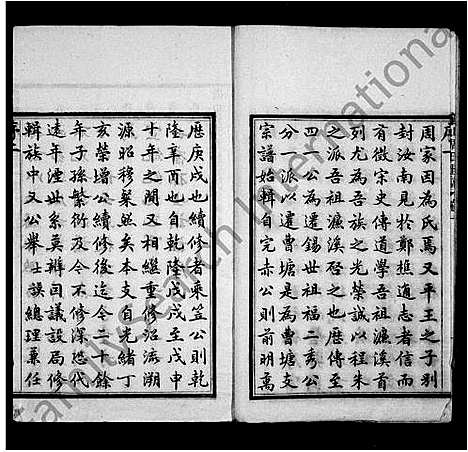 周家因為氏焉又平王之子別
封汝南見於鄭樵通志者信而
有徵宋史傳道學吾祖濂溪首
列尤為吾族之光榮誠以程朱
之派吾祖濂溪啓之也曆傳至
四一公為遷錫世祖福二秀公
分一遷曹塘是為曹塘支
宗譜始輯自完赤公則前明萬
歷庚戌也續修者乘笠公則乾
隆辛酉也自乾隆戊戌至戊申
十年之間又相繼重修沿流溯
源昭穆粲然矣本支自光緒丁
亥榮增公續修後迄今二十餘
年子孫繁衍及今不修深恐代
遠年湮世系莫辨因議設局修
輯族中又公舉士誤總理兼任
FamilySearch International